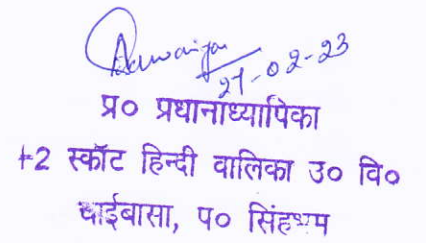 21-02-23
प्र० प्रधानाध्यापिका
+2 स्कॉट हिन्दी वालिका उ० वि०
चाईबासा, प० सिंहभूम